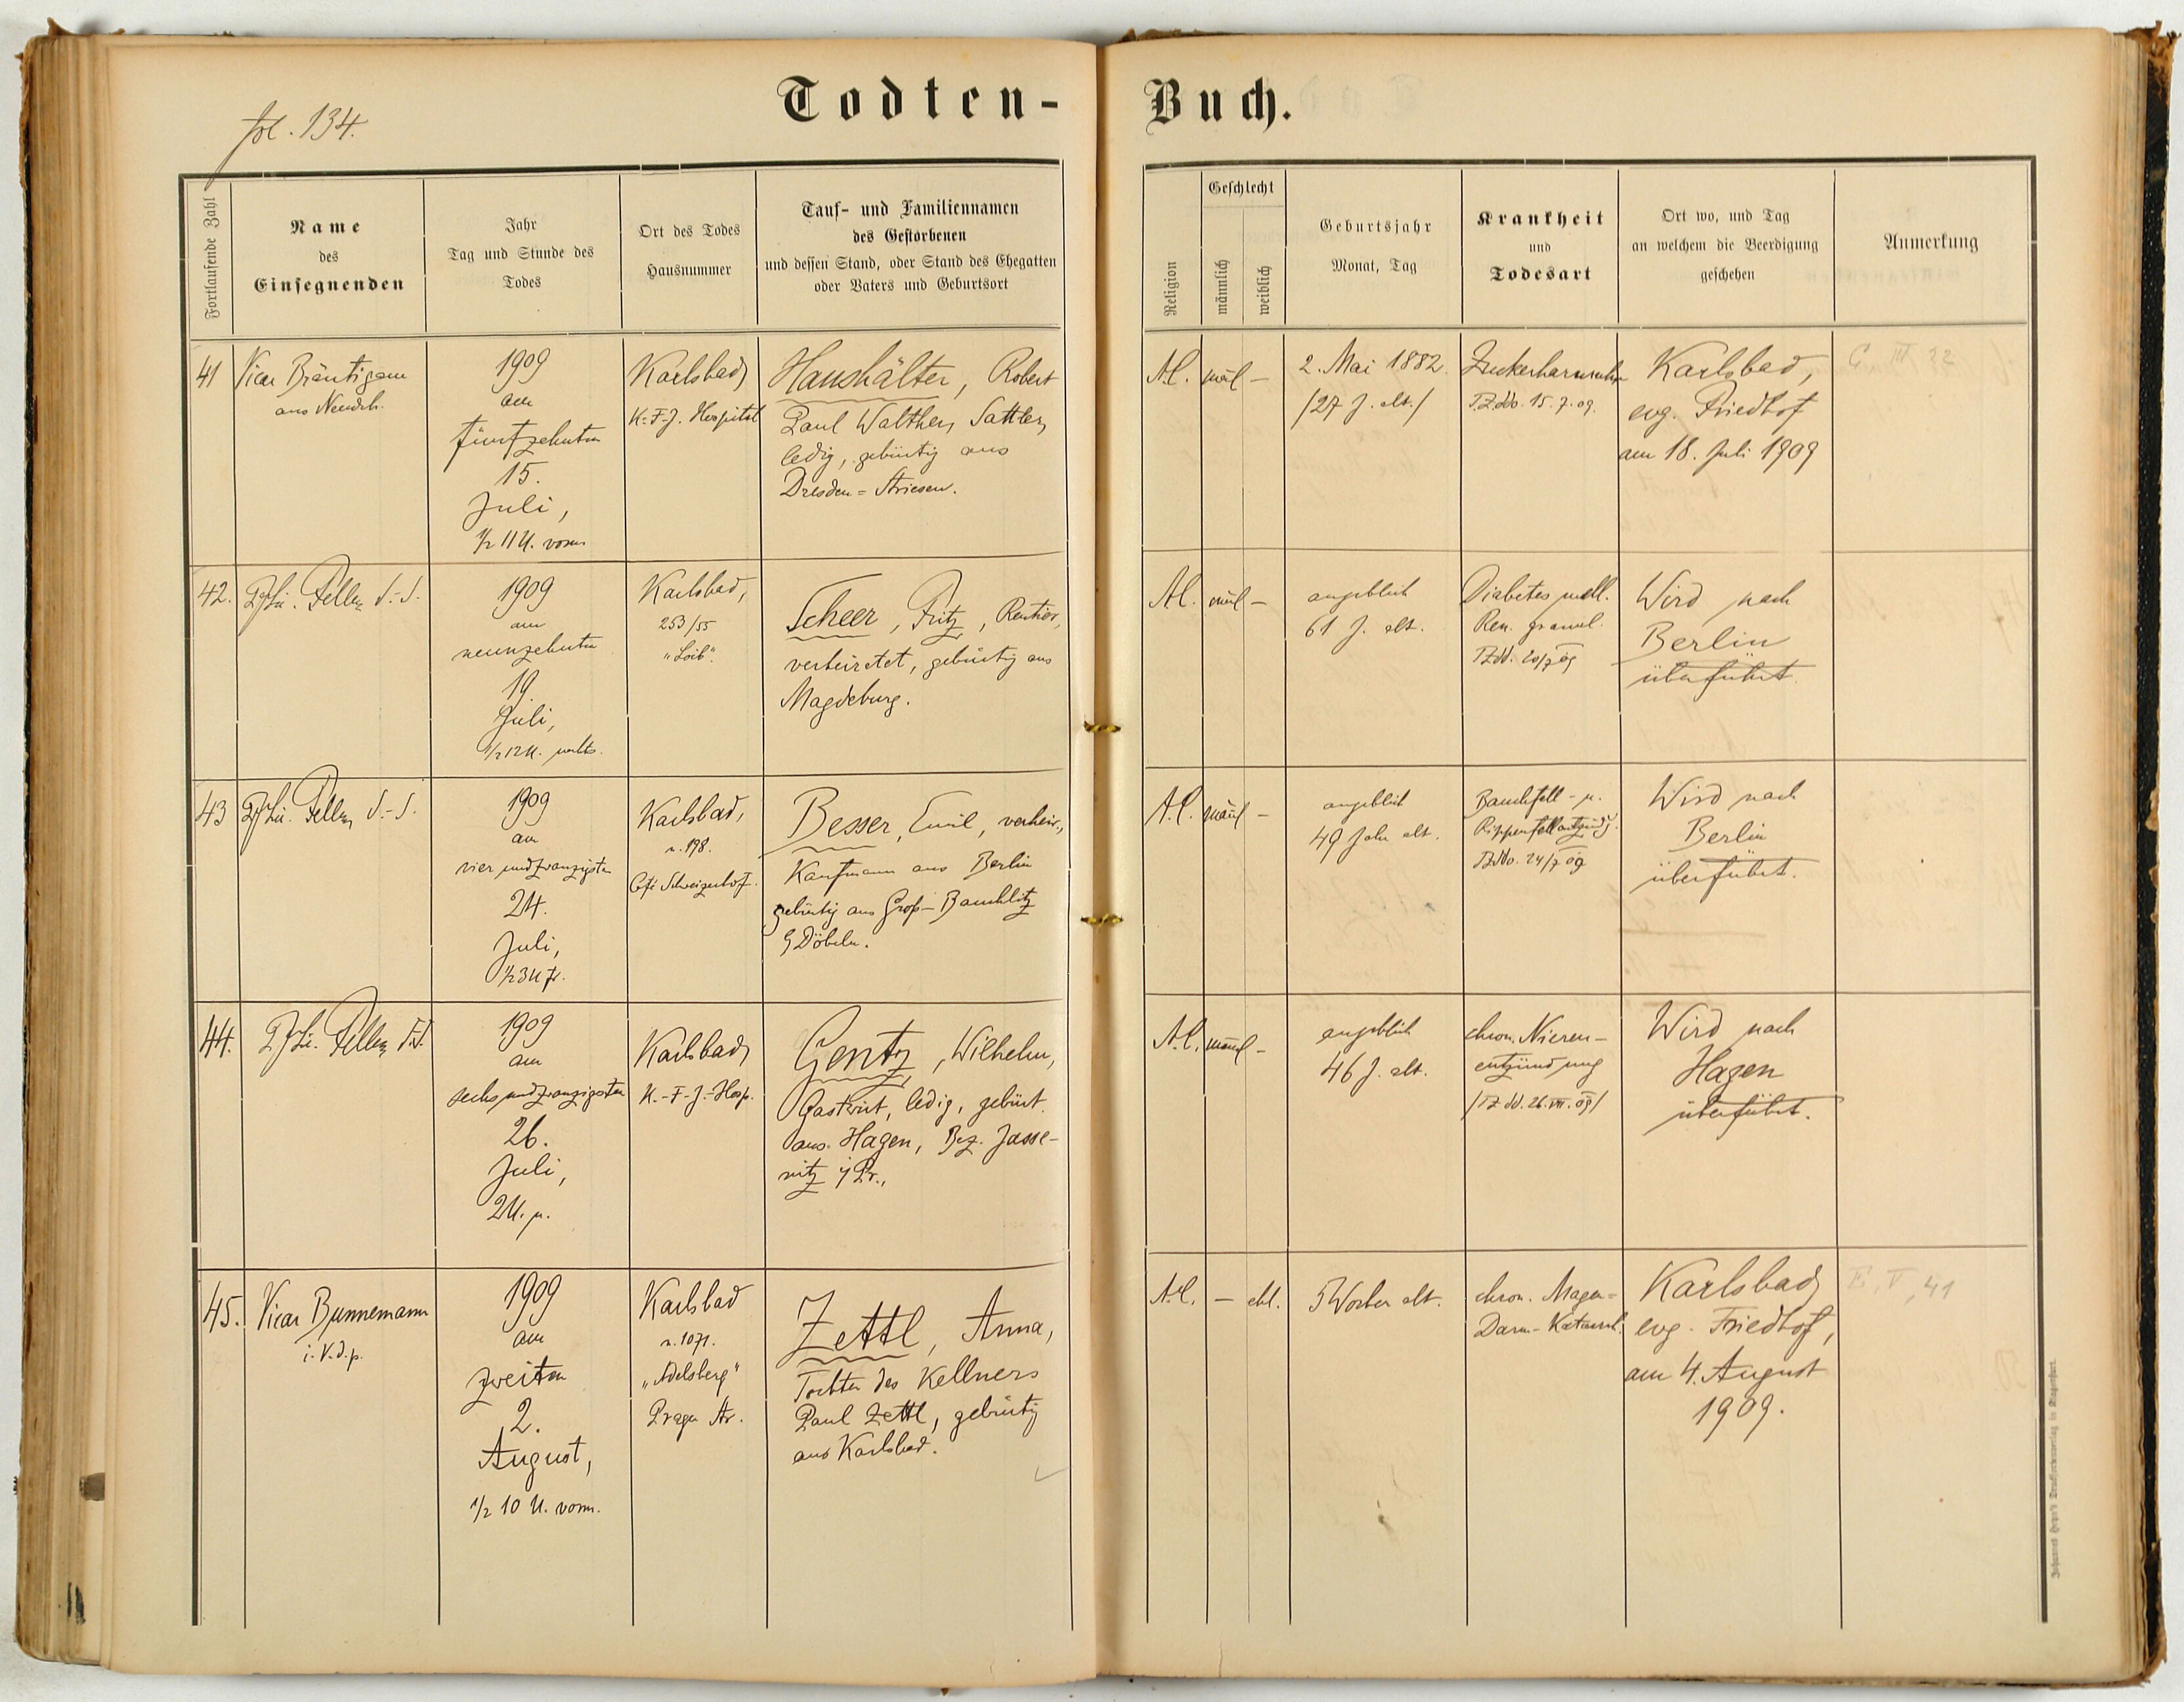 fol. 134.
Todten-Buch.
Fortlaufende Zahl
Name
des
Einsegnenden
Jahr
Tag und Stunde des
Todes
Ort des Todes
Hausnummer
Tauf- und Familiennamen
des Gestorbenen
und dessen Stand, oder Stand des Ehegatten
oder Vaters und Geburtsort
Religion
Geschlecht
männlich
weiblich
Geburtsjahr
Monat, Tag
Krankheit
und
Todesart
Ort wo, und Tag
an welchem die Beerdigung
geschehen
Anmerkung
41
Vicar Bräutigam
aus Neudek.
1909
am
fünfzehnten
15.
Juli,
1/2 11 U. vorm
Karlsbad,
K.-F.-J. Hospital
Haushälter, Robert
Paul Walther, Sattler,
ledig, gebürtig aus
Dresden=Striesen.
A.C.
mäl
–
2. Mai 1882.
/27 J. alt./
Zuckerharnruhr
T.Z. ddo. 15.7.09.
Karlsbad,
evg. Friedhof
am 18. Juli 1909
C III 22
42.
Feller
1909
am
neunzehnten
19.
Juli,
1/2 12 U. nachts.
Karlsbad,
253/55
"Loib".
Scheer, Fritz, Rentier,
verheiratet, gebürtig aus
Magdeburg.
A.C.
mäl
–
angeblich
61 J. alt.
Diabetes mell.
Ren. granul.
TZ dd. 20/7 09
Wird nach
Berlin
überführt.
43
Feller
1909
am
vierundzwanzigsten
24.
Juli,
1/2 3 U fr.
Karlsbad,
n. 198.
Café Schweizerhof.
Besser, Emil, verheir.,
Kaufmann aus Berlin
gebürtig aus Groß-Bauchlitz
b/ Döbeln.
A.C.
mänl
–
angeblich
49 Jahr alt.
Bauchfell- u.
Rippenfellentzündg.
TZ ddo. 24/7 09
Wird nach
Berlin
überführt.
44.
Feller
1909
am
sechsundzwanzigsten
26.
Juli,
2 U. n.
Karlsbad,
K.-F.-J.-Hosp.
Gentz, Wilhelm,
Gastwirt, ledig, gebürt.
aus Hagen, Bez. Jasse-
nitz i/ Pr.,
A.C.
mänl
–
angeblich
46 J. alt.
chron. Nieren-
entzündung
/TZ dd. 26. VII. 09/
Wird nach
Hagen
überführt.
45.
Vicar Bunnemann
i. V. d. p.
1909
am
zweiten
2.
August,
1/2 10 U. vorm.
Karlsbad
n. 1071.
"Adelsberg"
Prager Str.
Zettl, Anna,
Tochter des Kellners
Paul Zettl, gebürtig
aus Karlsbad.
A.C.
–
5 Wochen alt.
chron. Magen=
Darm-Katarrh.
Karlsbad,
evg. Friedhof,
am 4. August
1909.
E, V, 41